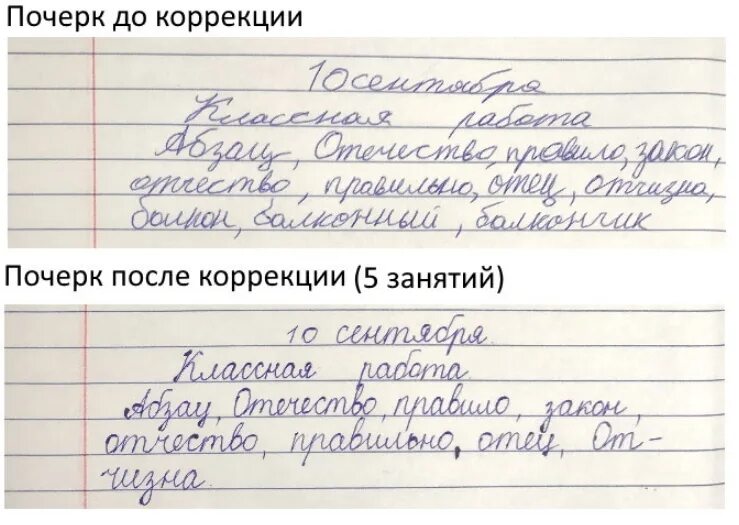 Почерк до коррекции
10 сентября
Классная работа
Абзац, Отечество, правило, закон,
отчество, правильно, отец, отчизна,
балкон, балконный, балкончик
Почерк после коррекции (5 занятий)
10 сентября.
Классная работа.
Абзац, Отечество, правило, закон,
отчество, правильно, отец, От-
чизна.